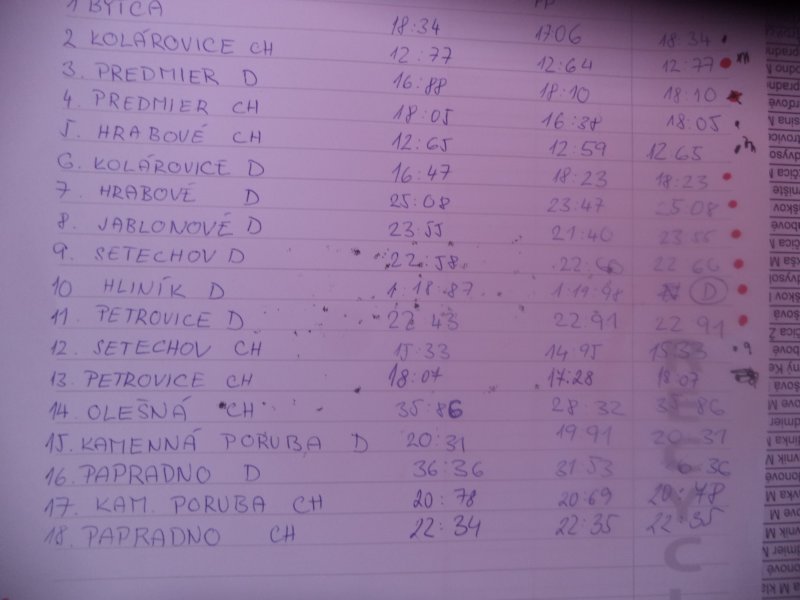 1 BYTČA 18:34 17:06 18:34
2 KOLÁROVICE CH 12:77 12:64 12:77
3. PREDMIER D 16:88 18:10 18:10
4. PREDMIER CH 18:05 16:38 18:05
5. HRABOVÉ CH 12:65 12:59 12 65
6. KOLÁROVICE D 16:47 18:23 18:23
7. HRABOVÉ D 25:08 23:47 25:08
8. JABLONOVÉ D 23:55 21:40 23:55
9. SETECHOV D 22:58 22:60 22 60
10 HLINÍK D 1:18:87 1:19:98 D
11. PETROVICE D 22 43 22:91 22 91
12. SETECHOV CH 15:33 14:95 15 33
13. PETROVICE CH 18:07 17:28 18 07
14. OLEŠNÁ CH 35:86 28:32 35 86
15. KAMENNÁ PORUBA D 20:31 19 91 20 31
16. PAPRADNO D 36:36 31 53 6 36
17. KAM. PORUBA CH 20:78 20:69 20:78
18. PAPRADNO CH 22:34 22:35 22:35
RECYC